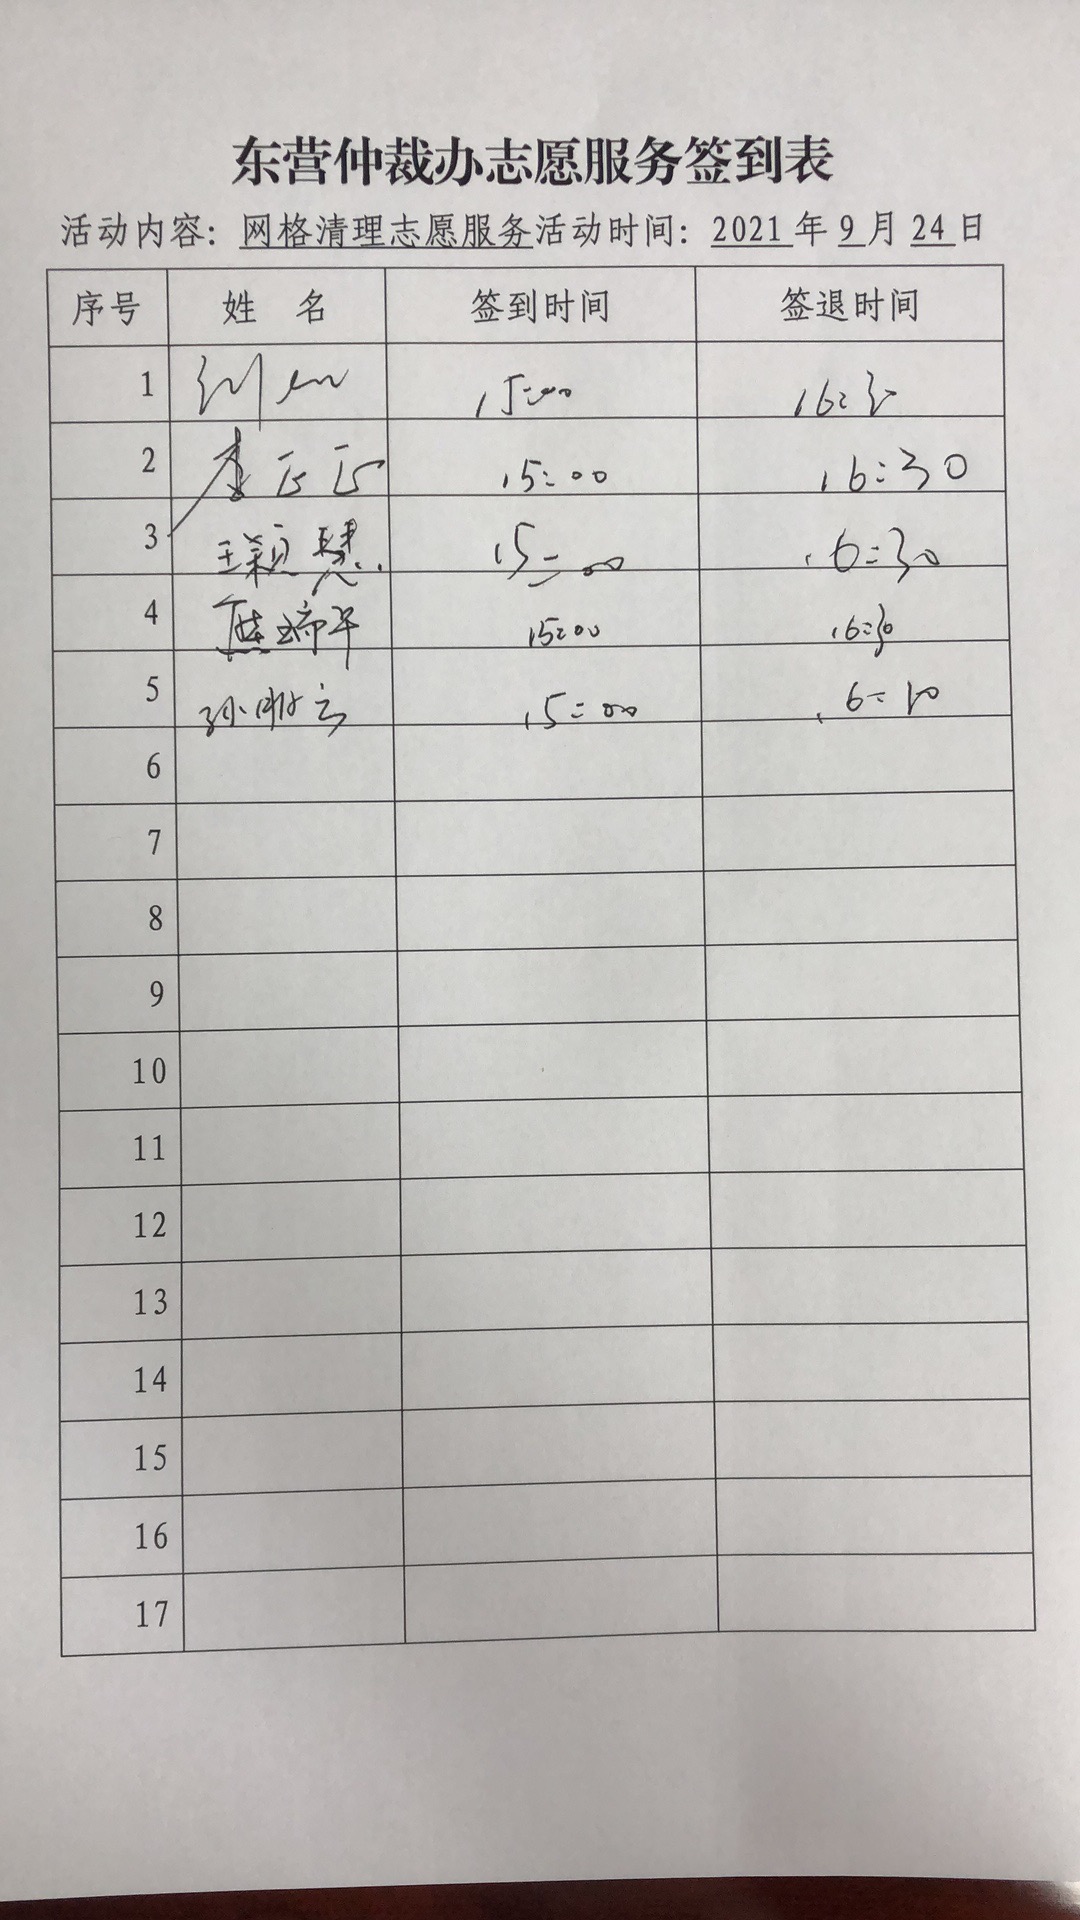 东营仲裁办志愿服务签到表
活动内容：网格清理志愿服务活动时间：2021年9月24日
序号 姓 名 签到时间 签退时间
1 15:00 16:30
2 李正正 15:00 16:30
3 王颖慧 15:00 16:30
4 熊瑞平 15:00 16:30
5 孙 15:00 16:
6
7
8
9
10
11
12
13
14
15
16
17